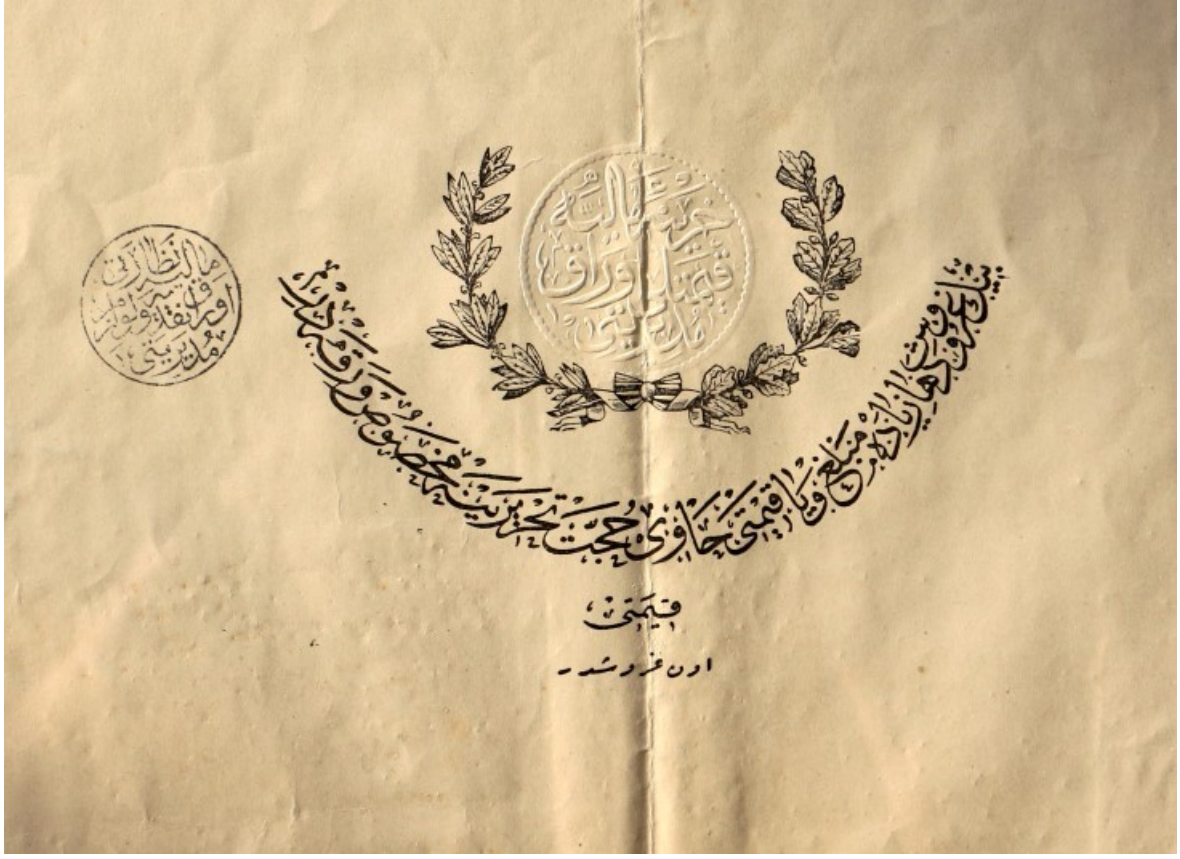 خزينه ماليه
قيمتلى اوراق
مديريتى
ماليه نظارتى
اوراق نقديه ولوازم
مديريتى
بيك غروشدن دها زياده مبلغ ويا قيمتى حاوى حجت تحريرينه مخصوص ورقه در
قيمتى
اون غروشدر